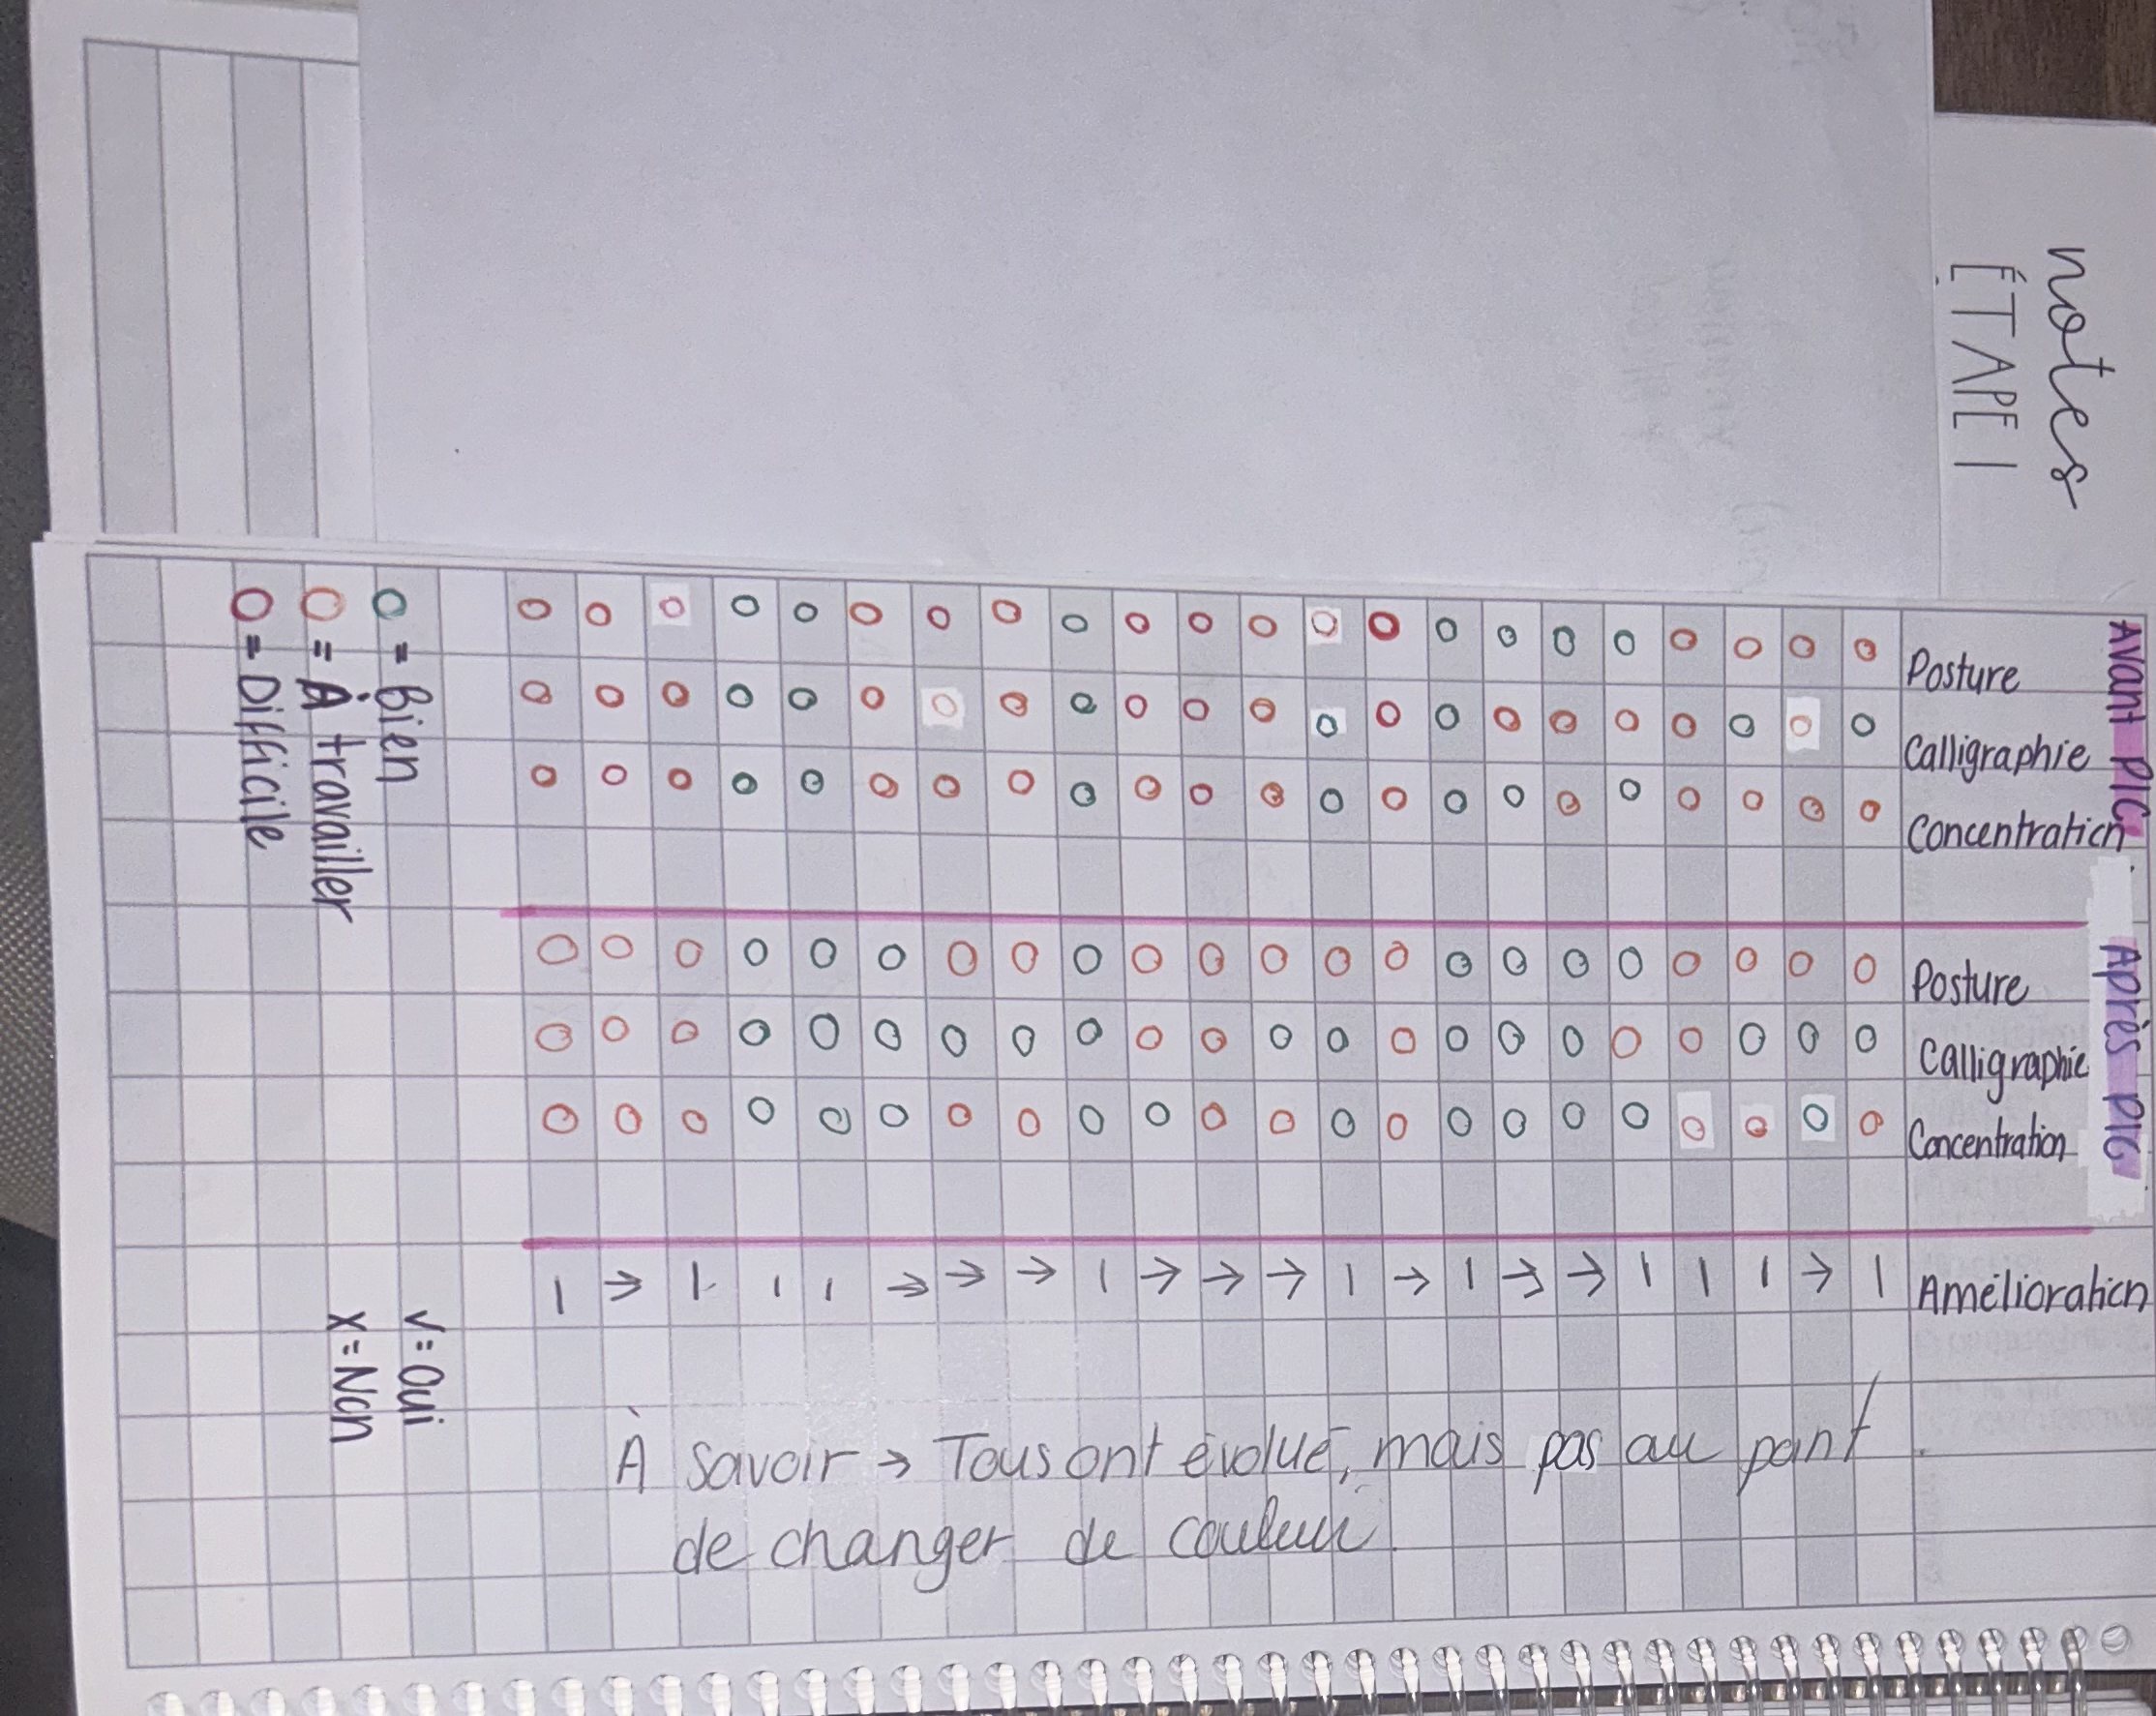 notes
ÉTAPE 1
Avant PIC
Posture
Calligraphie
Concentration
Après PIC
Posture
Calligraphie
Concentration
Amélioration
| → | | → → | | → | → → → | → → → | | | → |
O = Bien
O = À travailler
O = Difficile
√ = Oui
X = Non
À savoir → Tous ont évolué, mais pas au point
de changer de couleur